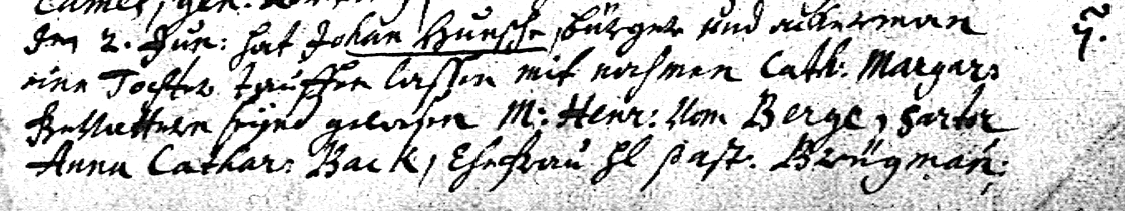 den 2. Jun: hat Johan Hunsche, bürger und ackerman
eine Tochter tauffen lassen mit nahmen Cath: Margar:
gevattern seynd gewesen M: Henr: Vom Berge, sartor
Anna Cathar: Back, Ehefrau Hl past: Brügman: